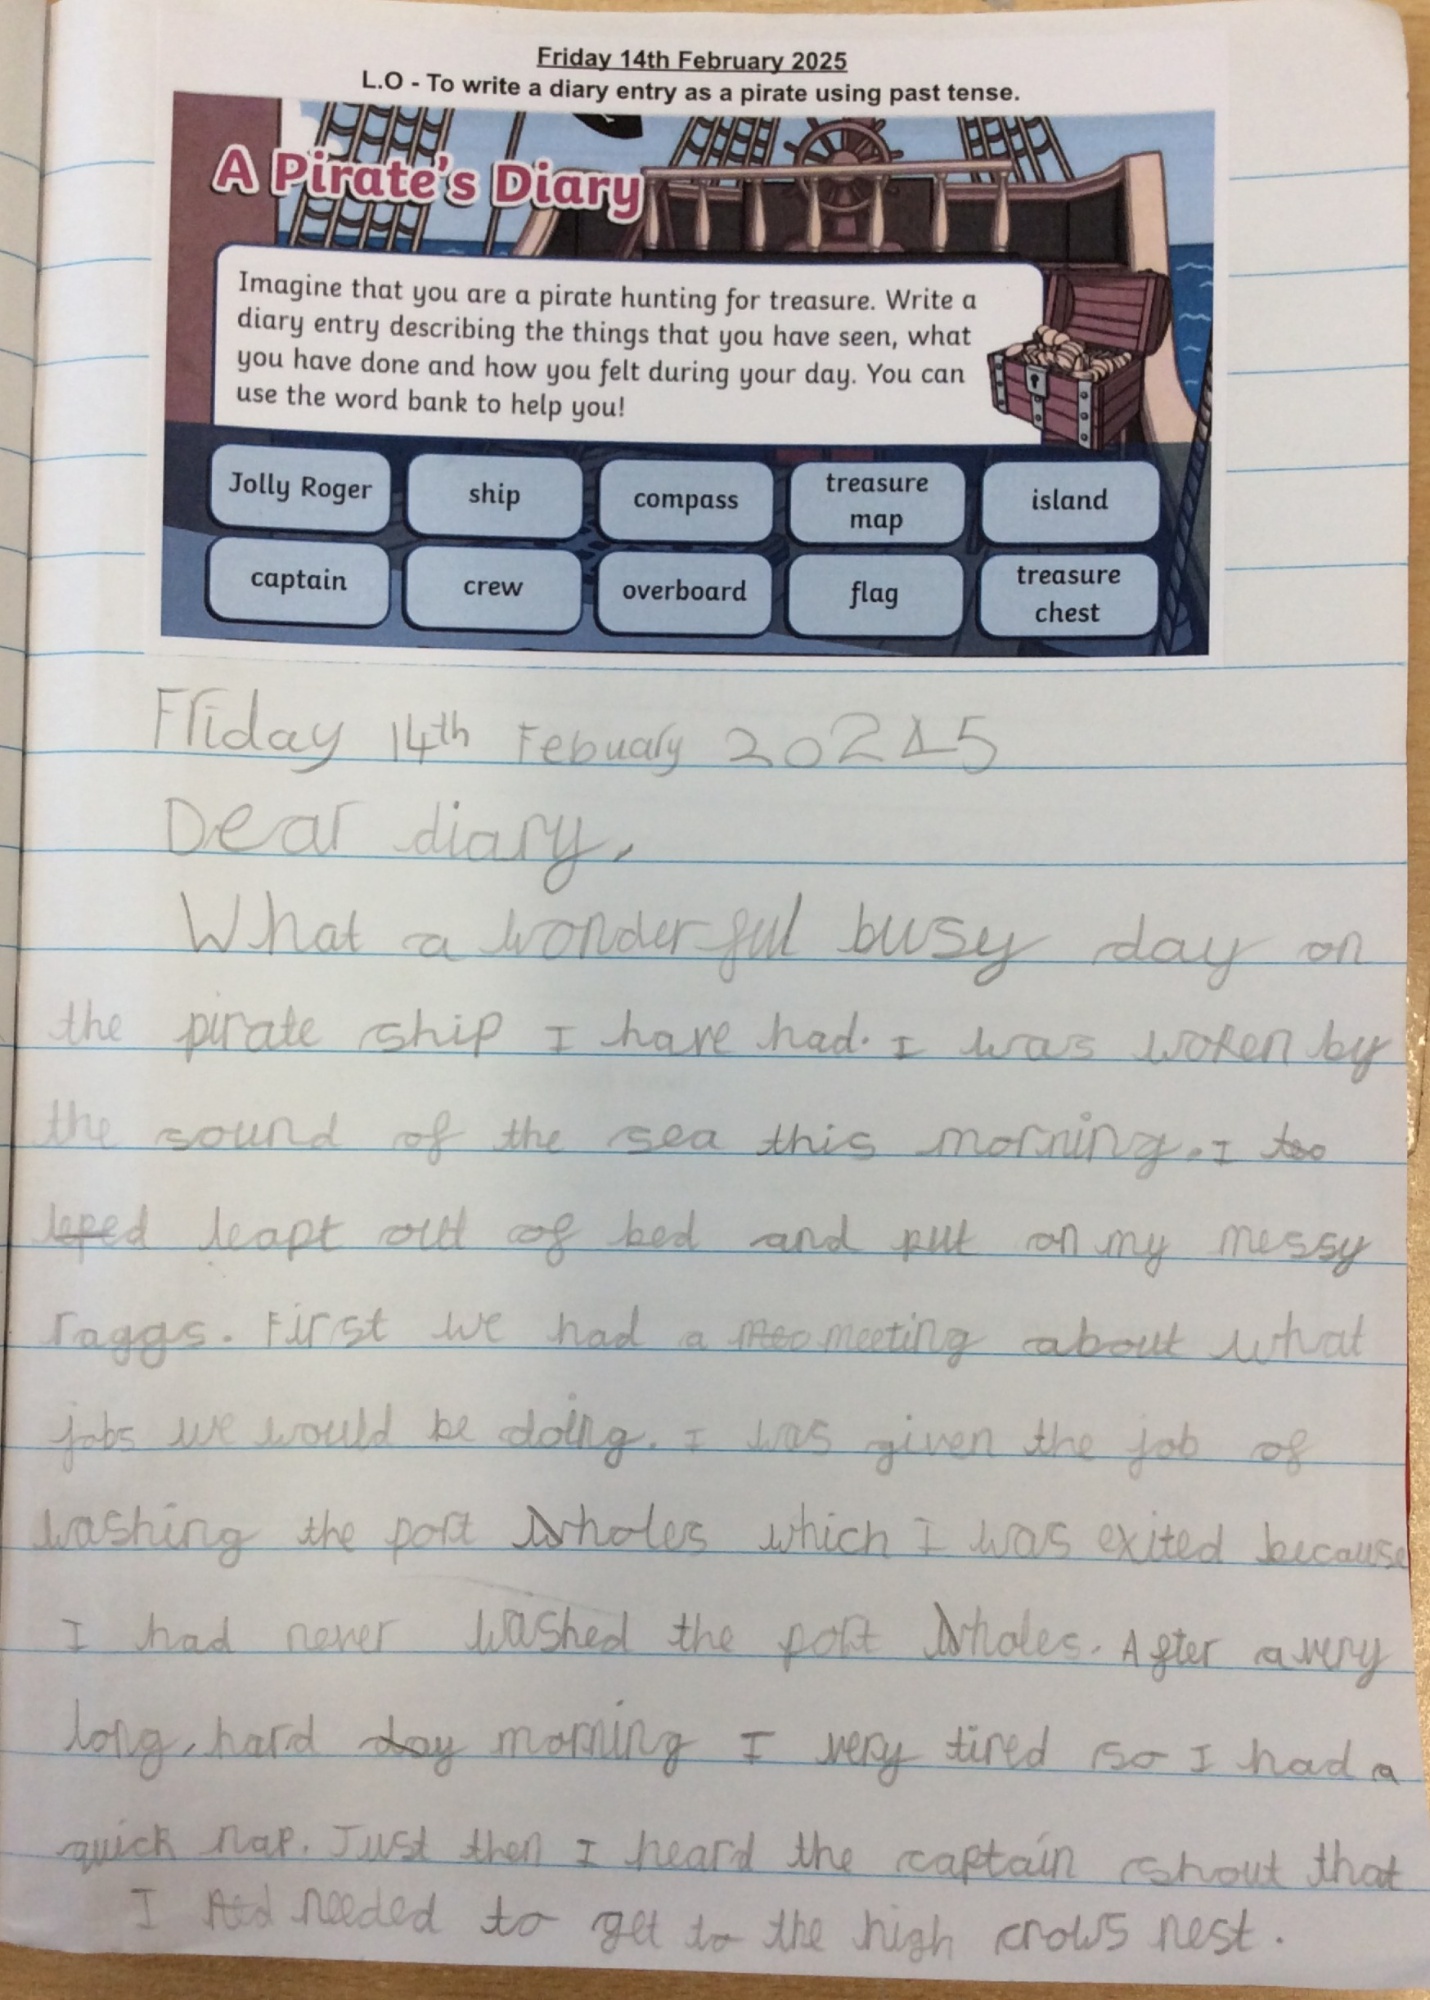 Friday 14th February 2025
L.O - To write a diary entry as a pirate using past tense.
A Pirate's Diary
Imagine that you are a pirate hunting for treasure. Write a
diary entry describing the things that you have seen, what
you have done and how you felt during your day. You can
use the word bank to help you!
Jolly Roger ship compass treasure map island
captain crew overboard flag treasure chest
Friday 14th Febuary 2025
Dear diary,
What a wonderful busy day on
the pirate ship I have had. I was woken by
the sound of the sea this morning. I
leped leapt out of bed and put on my messy
raggs. First we had a meeting about what
jobs we would be doing. I was given the job of
washing the port wholes which I was exited because
I had never washed the port wholes. After a very
long, hard day morning I very tired so I had a
quick nap. Just then I heard the captain shout that
I needed to get to the high crows nest.